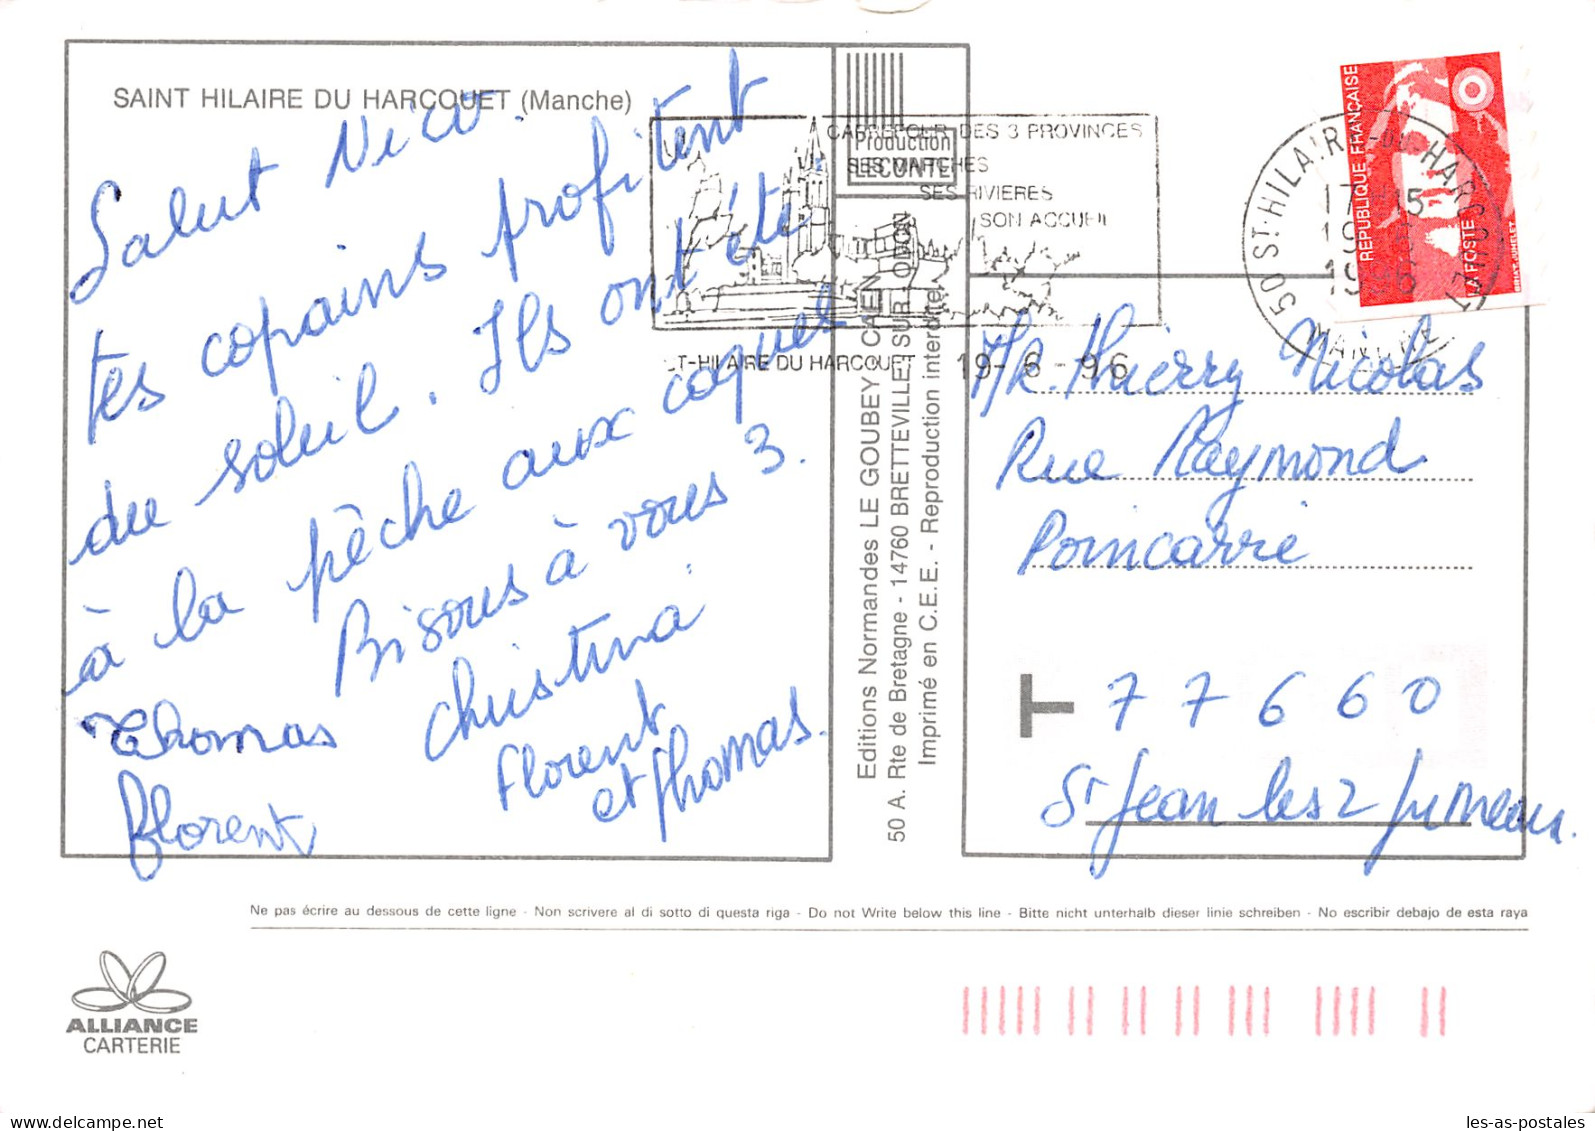 SAINT HILAIRE DU HARCOUET (Manche)
Salut Nico.
tes copains profitent
du soleil. Ils ont été
à la pêche aux coques
Bisous à vous 3.
Christina
Florent
et Thomas.
Thomas
florent
Production
LECONTE
Editions Normandes LE GOUBEY - CAEN
50 A. Rte de Bretagne - 14760 BRETTEVILLE SUR ODON
Imprimé en C.E.E. - Reproduction interdite
CARREFOUR DES 3 PROVINCES
SES MARCHES
SES RIVIERES
SON ACCUEIL
ST-HILAIRE DU HARCOUET 19-6-96
50 ST. HILAIRE-DU-HARCOUET
17 15
19 6
1996
MANCHE
REPUBLIQUE FRANÇAISE
LA POSTE
Mr. Thierry Nicolas
Rue Raymond
Poincarrie
T 77660
St Jean les 2 Jumeaux.
Ne pas écrire au dessous de cette ligne - Non scrivere al di sotto di questa riga - Do not Write below this line - Bitte nicht unterhalb dieser linie schreiben - No escribir debajo de esta raya
ALLIANCE
CARTERIE
les-as-postales.com